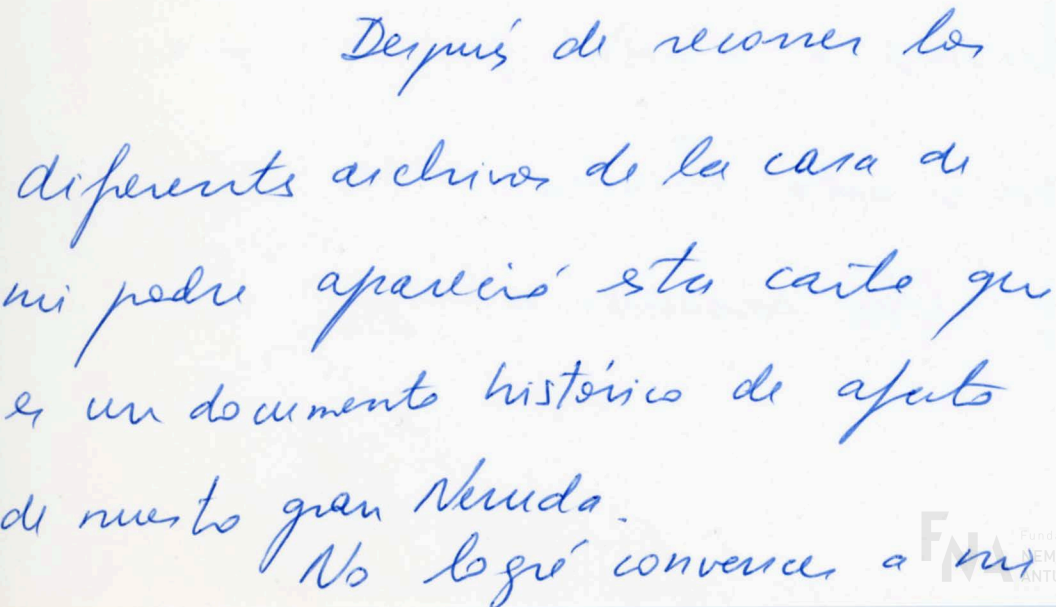 Después de recorrer los
diferentes archivos de la casa de
mi padre apareció esta carta que
es un documento histórico de afecto
de nuestro gran Neruda.
No logré convencer a mis
FNA